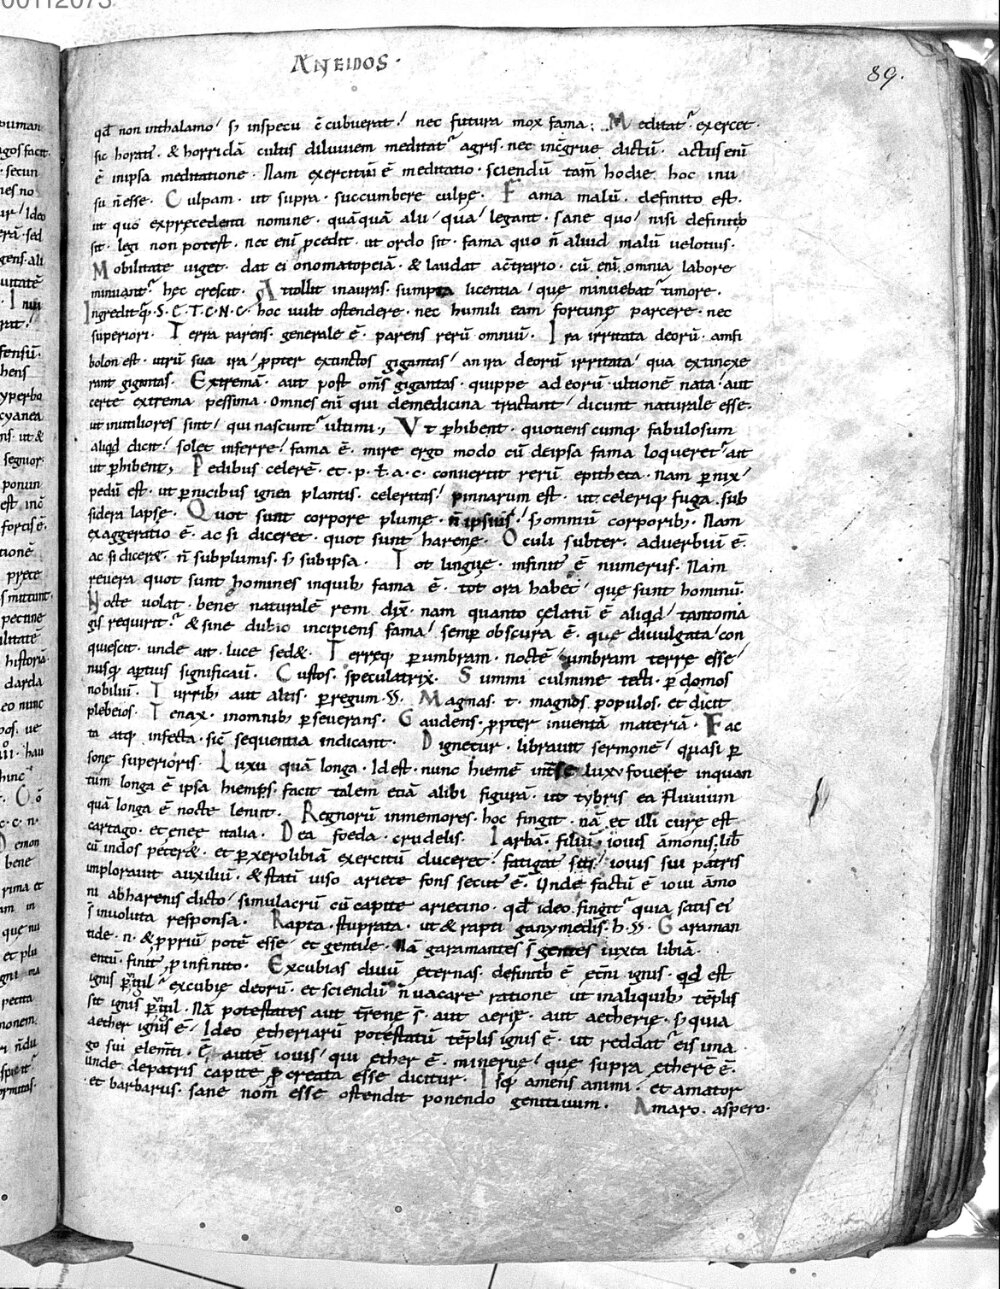 00112073
ÆNEIDOS·
89.
qđ non inthalamo / ẜ inspecu c̄cubuerat / nec futura mox fama. Meditat᷑ exercet·
sic horati᷑. & horridā cultis diluuiem meditat᷑ agris. nec incg̅rue dictū. actus eni̅
ē inipsa meditatione. Nam exercitiū ē meditatio. sciendū tam̄ hodie hoc inu
su n̄esse. Culpam. ut supra. succumbere culpę. Fama malū. definitio est.
ut quo exprecedenti nomine. quāquā alii / qua / legant. sane quo / nisi definitio
sit. legi non potest. nec eni̅ ꝓcedit. ut ordo sit. fama quo n̄ aliud malū uelotius.
Mobilitate uiget. dat ei onomatopeiā. & laudat ac̄trario. cū eni̅ omnia labore
minuant᷑ hęc crescit. Attollit inauras. sumpta licentia / quę minuebat᷑ timore.
Ingreditq; S. C. T. C. N. C. hoc uult ostendere. nec humili eam fortunę parcere. nec
superiori. Terra parens. generale ē. parens rerū omniū. Ira irritata deorū. amfi
bolon est. utrū sua ira / ꝓpter extinctos gigantas / an ira deorū irritata / qua extinxe
runt gigantas. Extremā. aut post om̄s gigantas. quippe ad eorū ultionē nata / aut
certe extrema pessima. omnes eni̅ qui demedicina tractant / dicunt naturale esse.
ut inutiliores sint / qui nascunt᷑ ultimi; Vt ꝑhibent. quotienscumq; fabulosum
aliqd dicit / solet inferre / fama ē. mire ergo modo cū deipsa fama loqueret᷑ ait
ut ꝑhibent; Pedibus celerē. et. p. ł. a. c. conuertit rerū epitheta. nam ꝑnix /
pedū est. ut ꝑnicibus ignea plantis. celeritas / pinnarum est. ut celeriq; fuga. sub
sidera lapsę. Quot sunt corpore plumę. n̄ ipsius / ẜ omniū corporib;. Nam
exaggeratio ē. ac si diceret. quot sunt harenę. Oculi subter. aduerbiū ē.
ac si diceret. n̄ subplumis. ẜ subipsa. Tot linguę. infinit᷒ ē numerus. Nam
reuera quot sunt homines inquib; fama ē. tot ora habet / quę sunt hominū.
Nocte uolat. bene naturalē rem dix̄. nam quanto cęlatū ē aliqd / tantoma
gis requirit᷑. & sine dubio incipiens fama / semꝑ obscura ē. quę diuulgata / con
quiescit. unde ait. luce sed&. Terręq; ꝑumbram. noctē umbram terrę esse /
nusq; aptius significauit. Custos. speculatrix. Summi culmine tecti. ꝑ domos
nobiliū. Turrib; aut altis. ꝑregum. Magnas. t. magnos populos. et dicit
plebeios. Tenax. inomnib; ꝑseuerans. Gaudens. ꝓpter inuentā materiā. Fac
ta atq; infecta. sic̄ sequentia indicant. Dignetur. librauit sermonē / quasi ꝑ
sonę superioris. Luxu quā longa. Idest. nunc hiemē inter se luxu fouere inquan
tum longa ē ipsa hiemps. facit talem etiā alibi figurā. ut tybris ea fluuium
quā longa ē nocte leniit. Regnorū inmemores. hoc fingit. nā et illi curę est
cartago. et eneę italia. Dea foeda. crudelis. Iarbā. filiū iouis āmonis. lib̄
cū indos peteret. et ꝑ xerolibiā exercitū duceret / fatigat᷒ siti / iouis sui patris
implorauit auxiliū. & statī uiso ariete fons secut᷒ ē. Unde factū ē ioui āmo
ni abharenis dicto / simulacrū cū capite arietino. qđ ideo fingit᷑ quia satis ei᷒
s̄ inuoluta responsa. Rapta. stuprata. ut & rapti ganymedis. h. Garaman
tide. n. & ꝓpriū potē esse / et gentile. nā garamantes s̄ gentes iuxta libiā.
entū. finit᷒ ꝓ infinito. Excubias diuū ęternas. definitio ē. ęt̄ni ignis. qđ est
ignis ꝑuigil᷑ excubię deorū. et sciendū n̄ uacare ratione ut inaliquib; tēplis
sit ignis ꝑuigil. Nā potestates aut t̄renę s̄. aut aerię. aut aetherię. ẜ quia
aether ignis ē. Ideo ętheriarū potestatū tēplis ignis ē. ut reddat᷑ eis ima
go sui elem̄ti. Ē autē iouis / qui ether ē. mineruę / quę supra etherē ē.
unde depatris capite ꝓcreata esse dicitur. Isq; amens animi. et amator
et barbarus. sane nom̄ esse ostendit ponendo genitiuum. Amaro. aspero.